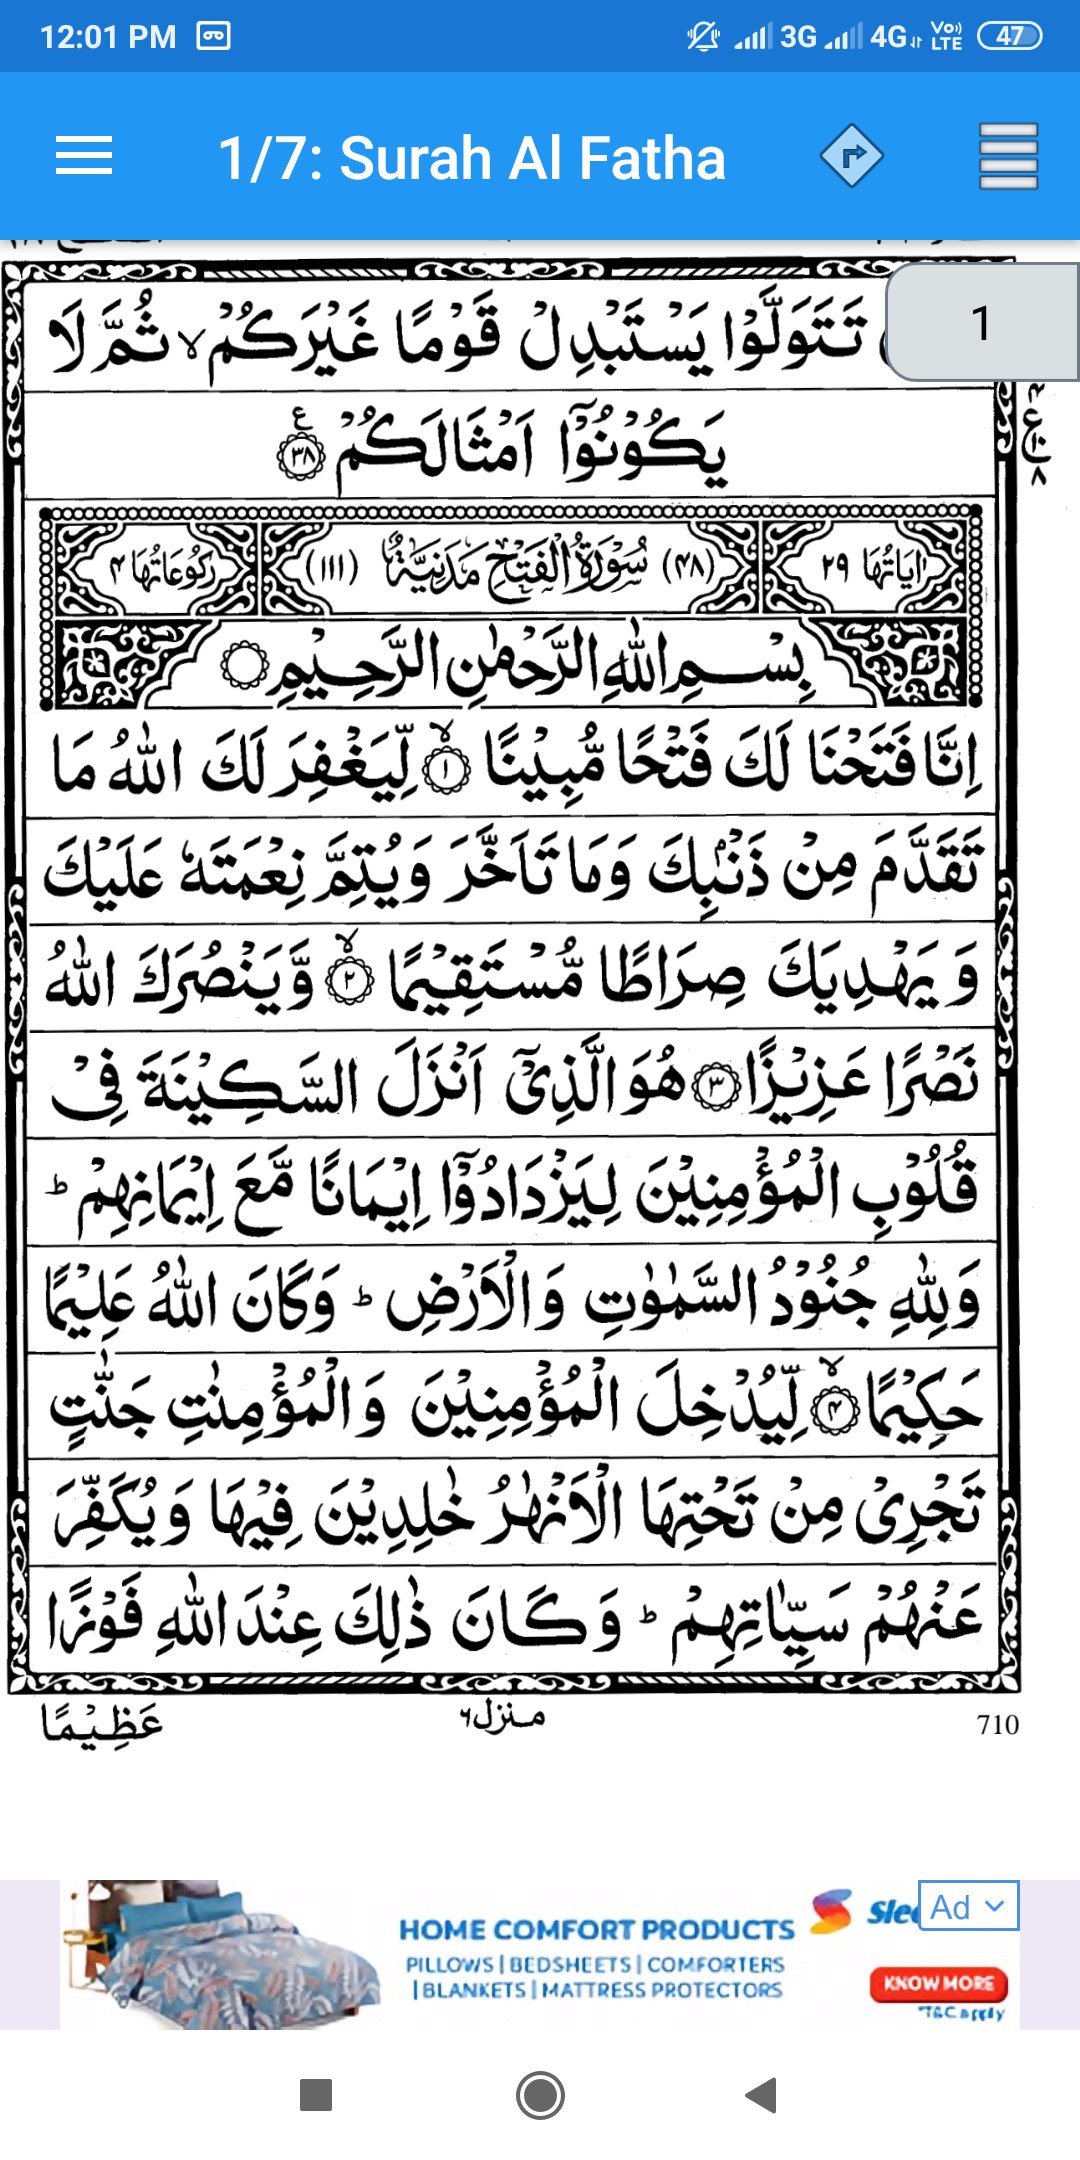 12:01 PM 3G 4G VoLTE 47
1/7: Surah Al Fatha
1
تَتَوَلَّوْا يَسْتَبْدِلْ قَوْمًا غَيْرَكُمْ ۙ ثُمَّ لَا
يَكُوْنُوْٓا اَمْثَالَكُمْ ﴿۳۸﴾ ع
اٰيَاتُهَا ۲۹ (۴۸) سُوْرَةُ الْفَتْحِ مَدَنِيَّةٌ (۱۱۱) رُكُوْعَاتُهَا ۴
بِسْمِ اللّٰهِ الرَّحْمٰنِ الرَّحِيْمِ
اِنَّا فَتَحْنَا لَكَ فَتْحًا مُّبِيْنًا ۙ﴿۱﴾ لِّيَغْفِرَ لَكَ اللّٰهُ مَا
تَقَدَّمَ مِنْ ذَنْۢبِكَ وَمَا تَاَخَّرَ وَيُتِمَّ نِعْمَتَهٗ عَلَيْكَ
وَ يَهْدِيَكَ صِرَاطًا مُّسْتَقِيْمًا ۙ﴿۲﴾ وَّيَنْصُرَكَ اللّٰهُ
نَصْرًا عَزِيْزًا ﴿۳﴾ هُوَ الَّذِيْٓ اَنْزَلَ السَّكِيْنَةَ فِيْ
قُلُوْبِ الْمُؤْمِنِيْنَ لِيَزْدَادُوْٓا اِيْمَانًا مَّعَ اِيْمَانِهِمْ ؕ
وَلِلّٰهِ جُنُوْدُ السَّمٰوٰتِ وَالْاَرْضِ ؕ وَكَانَ اللّٰهُ عَلِيْمًا
حَكِيْمًا ۙ﴿۴﴾ لِّيُدْخِلَ الْمُؤْمِنِيْنَ وَالْمُؤْمِنٰتِ جَنّٰتٍ
تَجْرِيْ مِنْ تَحْتِهَا الْاَنْهٰرُ خٰلِدِيْنَ فِيْهَا وَيُكَفِّرَ
عَنْهُمْ سَيِّاٰتِهِمْ ؕ وَكَانَ ذٰلِكَ عِنْدَ اللّٰهِ فَوْزًا
عَظِيْمًا
منزل ۶
710
HOME COMFORT PRODUCTS
PILLOWS | BEDSHEETS | COMFORTERS
| BLANKETS | MATTRESS PROTECTORS
Ad
KNOW MORE
*T&C apply